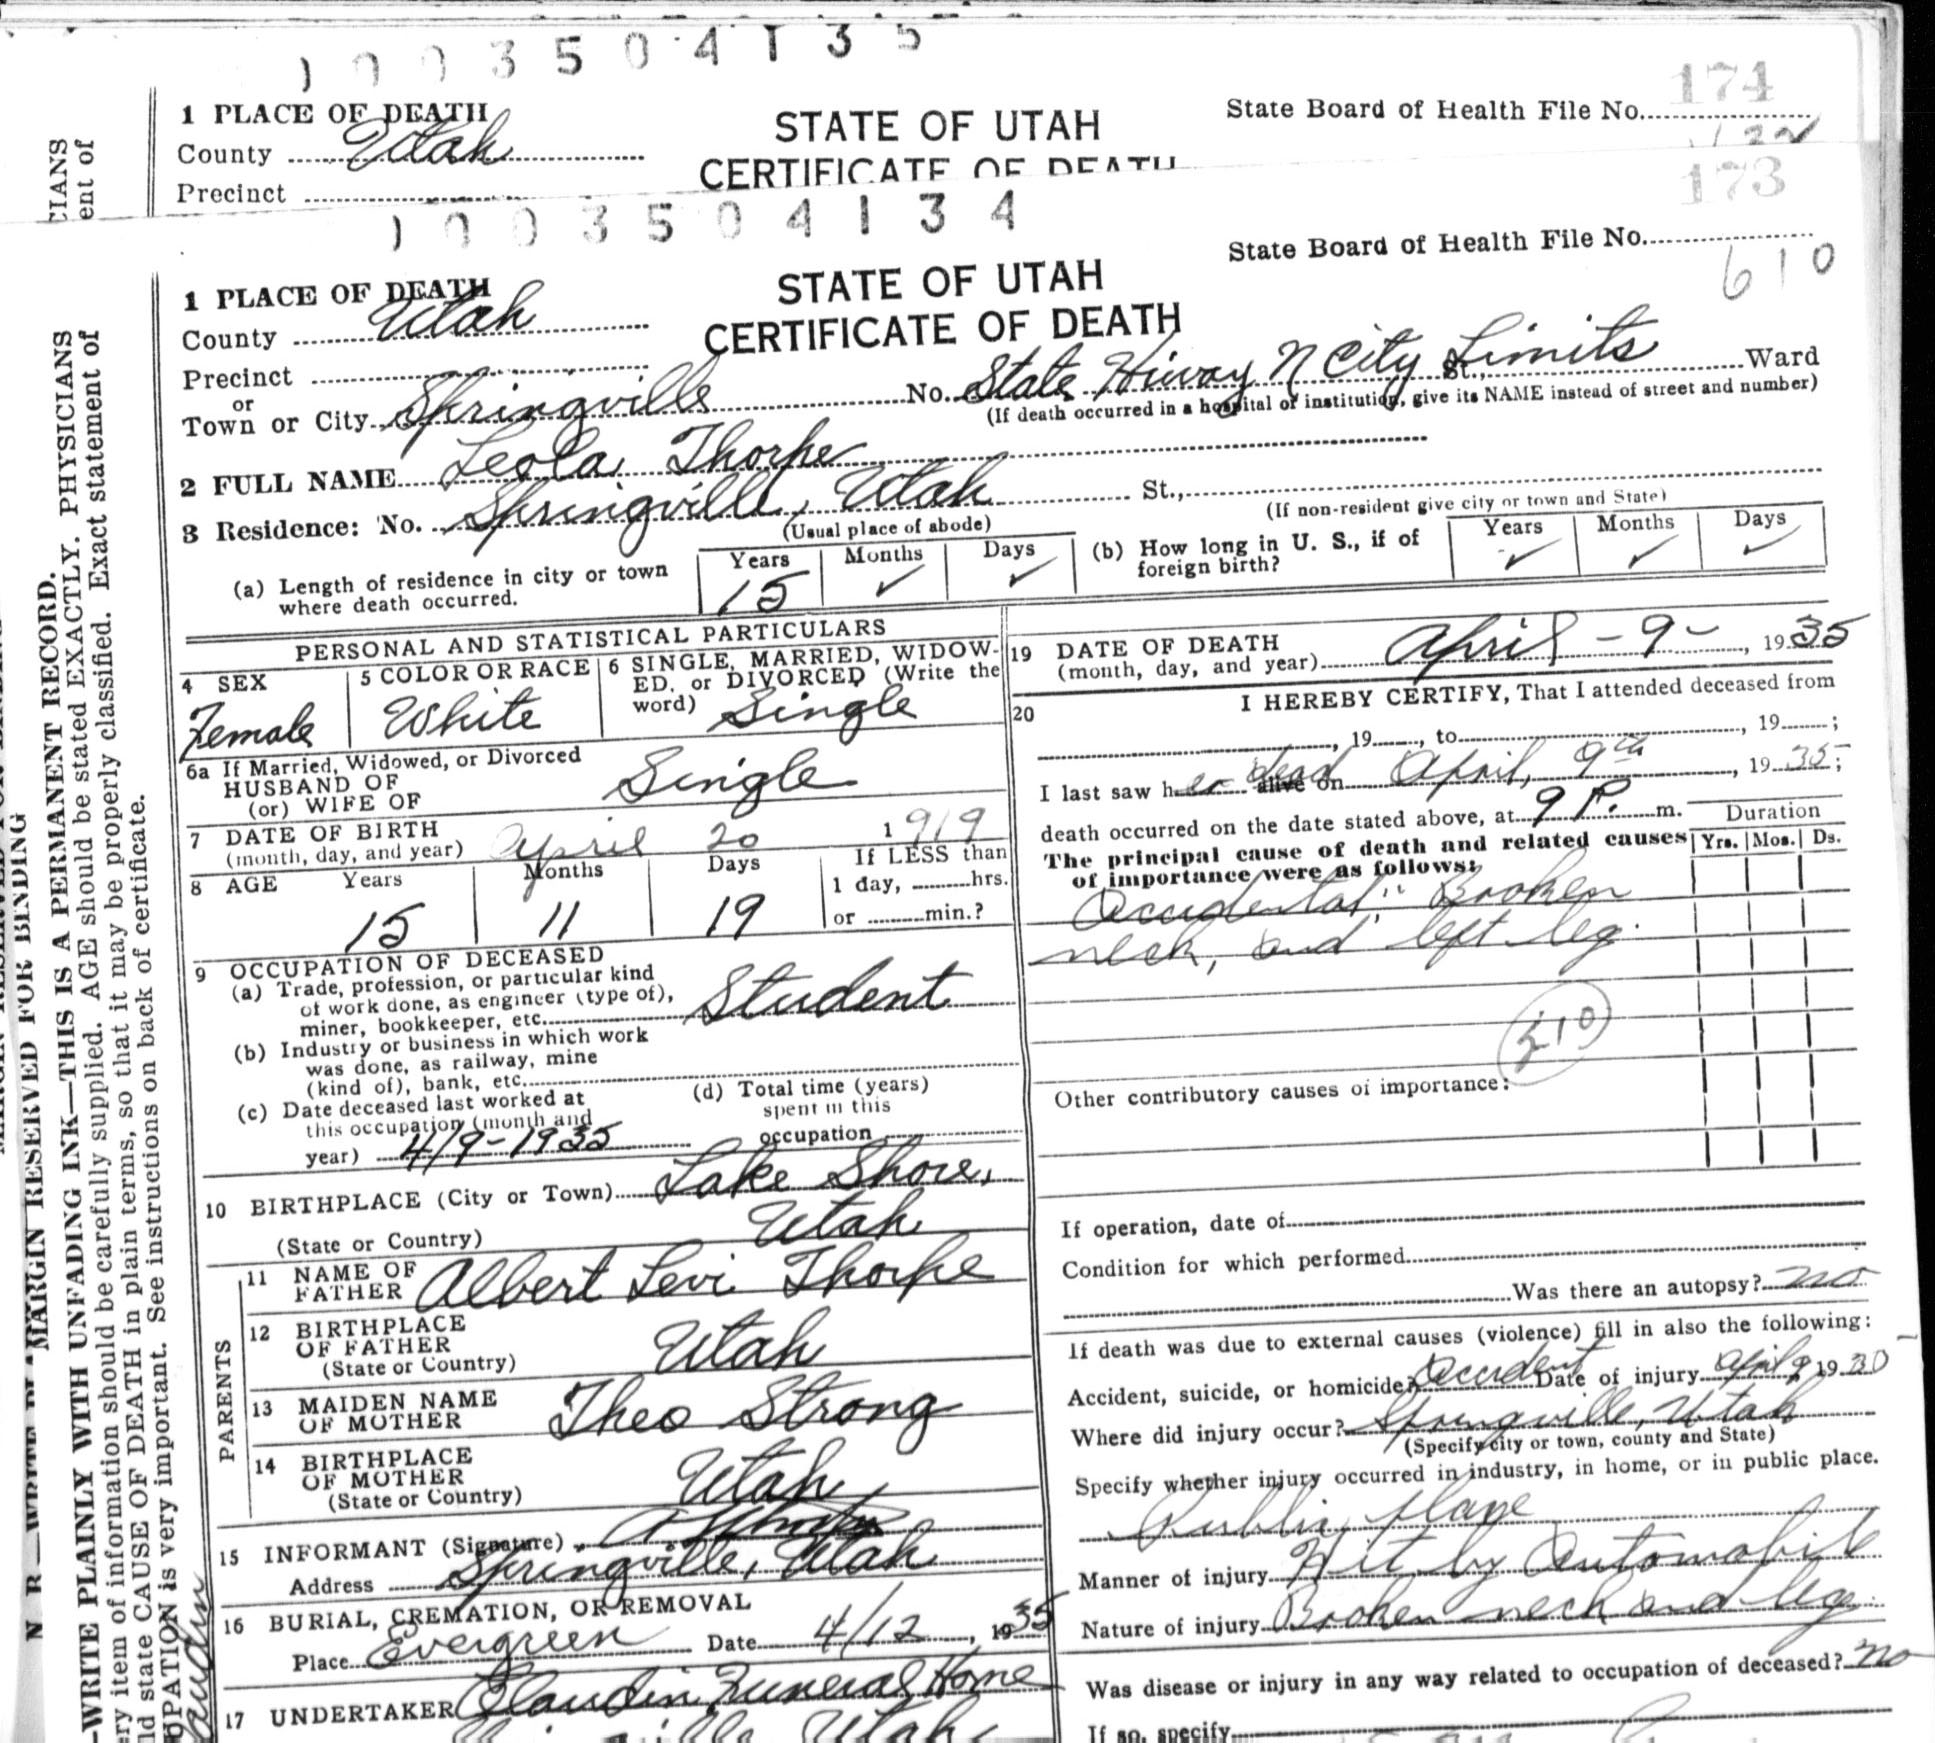 1003504135
1 PLACE OF DEATH
STATE OF UTAH
State Board of Health File No. 174
County Utah
CERTIFICATE OF DEATH
Precinct
1003504134
173
State Board of Health File No.
610
1 PLACE OF DEATH
STATE OF UTAH
County Utah
CERTIFICATE OF DEATH
Precinct
or
Town or City Springville No. State Hiway N City Limits St., Ward
(If death occurred in a hospital or institution, give its NAME instead of street and number)
2 FULL NAME Leola Thorpe
3 Residence: No. Springville, Utah St.,
(Usual place of abode) (If non-resident give city or town and State)
(a) Length of residence in city or town where death occurred. Years 15 Months ✓ Days ✓
(b) How long in U. S., if of foreign birth? Years ✓ Months ✓ Days ✓
PERSONAL AND STATISTICAL PARTICULARS
4 SEX
Female
5 COLOR OR RACE
White
6 SINGLE, MARRIED, WIDOWED, or DIVORCED (Write the word)
Single
6a If Married, Widowed, or Divorced
HUSBAND OF
(or) WIFE OF
Single
7 DATE OF BIRTH
(month, day, and year) April 20 1919
8 AGE Years Months Days If LESS than
15 11 19
1 day, hrs.
or min.?
9 OCCUPATION OF DECEASED
(a) Trade, profession, or particular kind
of work done, as engineer (type of),
miner, bookkeeper, etc. Student
(b) Industry or business in which work
was done, as railway, mine
(kind of), bank, etc.
(c) Date deceased last worked at
this occupation (month and
year) 4/9-1935
(d) Total time (years)
spent in this
occupation
10 BIRTHPLACE (City or Town) Lake Shore,
(State or Country) Utah
PARENTS
11 NAME OF
FATHER Albert Levi Thorpe
12 BIRTHPLACE
OF FATHER
(State or Country) Utah
13 MAIDEN NAME
OF MOTHER Theo Strong
14 BIRTHPLACE
OF MOTHER
(State or Country) Utah
15 INFORMANT (Signature)
Address Springville, Utah
16 BURIAL, CREMATION, OR REMOVAL
Place Evergreen Date 4/12, 1935
17 UNDERTAKER Claudin Funeral Home
Utah
19 DATE OF DEATH
(month, day, and year) April - 9 -, 1935
20 I HEREBY CERTIFY, That I attended deceased from
, 19 , to , 19 ;
I last saw her dead alive on April, 9th, 1935;
death occurred on the date stated above, at 9 P. m.
Duration
The principal cause of death and related causes
of importance were as follows:
Yrs. Mos. Ds.
Accidental" Broken
neck, and left leg.
210
Other contributory causes of importance:
If operation, date of
Condition for which performed
Was there an autopsy? no
If death was due to external causes (violence) fill in also the following:
Accident, suicide, or homicide? Accident Date of injury April 9 19
Where did injury occur? Springville, Utah
(Specify city or town, county and State)
Specify whether injury occurred in industry, in home, or in public place.
Public place
Manner of injury Hit by Automobile
Nature of injury Broken neck and leg
Was disease or injury in any way related to occupation of deceased? no
If so, specify
CIANS
ent of
MARGIN RESERVED FOR BINDING
WRITE PLAINLY WITH UNFADING INK—THIS IS A PERMANENT RECORD.
ery item of information should be carefully supplied. AGE should be stated EXACTLY. PHYSICIANS
ld state CAUSE OF DEATH in plain terms, so that it may be properly classified. Exact statement of
UPATION is very important. See instructions on back of certificate.